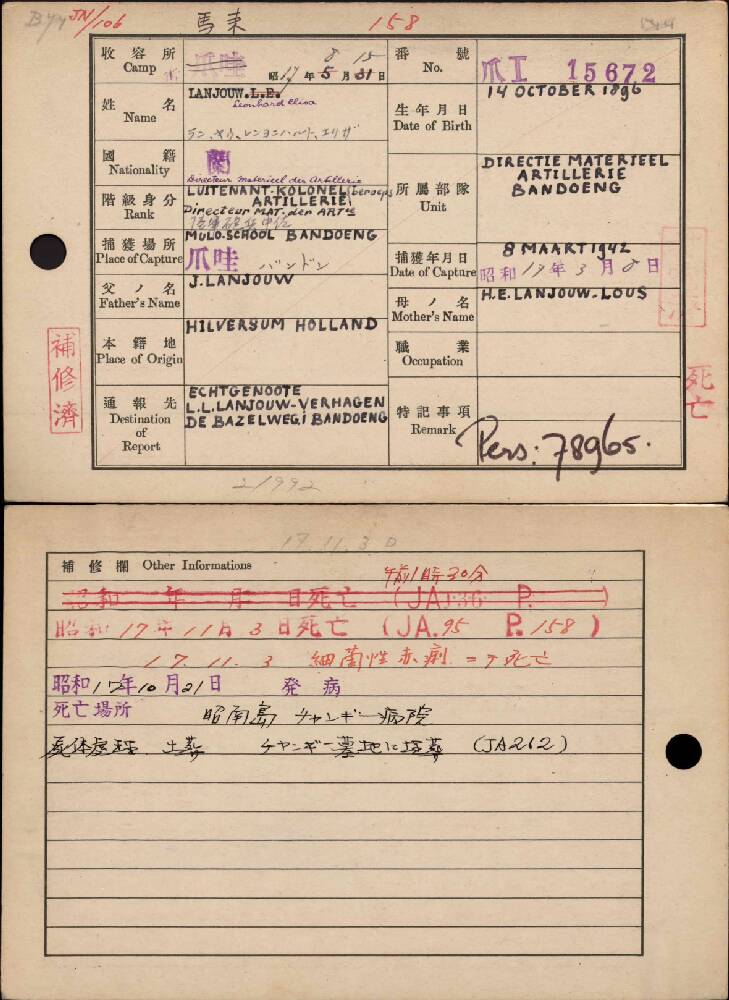 JN/106
馬来
158
収容所
Camp
爪哇
8 15
昭17年5月31日
番號
No.
爪I 15672
姓名
Name
LANJOUW.L.E.
Leonhard Elisa
生年月日
Date of Birth
14 OCTOBER 1896
國籍
Nationality
蘭
階級身分
Rank
Directeur Materieel der Artillerie
LUITENANT-KOLONEL (beroeps
ARTILLERIE)
Directeur MAT. der ARTie
所属部隊
Unit
DIRECTIE MATERIEEL
ARTILLERIE
BANDOENG
捕獲場所
Place of Capture
MULO-SCHOOL BANDOENG
爪哇 バンドン
捕獲年月日
Date of Capture
8 MAART 1942
昭和17年3月8日
父ノ名
Father's Name
J. LANJOUW
母ノ名
Mother's Name
H.E. LANJOUW-LOUS
本籍地
Place of Origin
HILVERSUM HOLLAND
職業
Occupation
通報先
Destination
of
Report
ECHTGENOOTE
L.L.LANJOUW-VERHAGEN
DE BAZELWEG.i BANDOENG
特記事項
Remark
Pers: 78965.
補修濟
死亡
2/1992
17.11.3
補修欄 Other Informations
午前1時30分
昭和 年 月 日死亡 (JA136 P. )
昭和17年11月3日死亡 (JA.95 P.158)
17.11.3 細菌性赤痢ニテ死亡
昭和17年10月21日 発病
死亡場所 昭南島 チャンギー病院
屍体處理 土葬 チャンギー墓地に埋葬 (JA212)